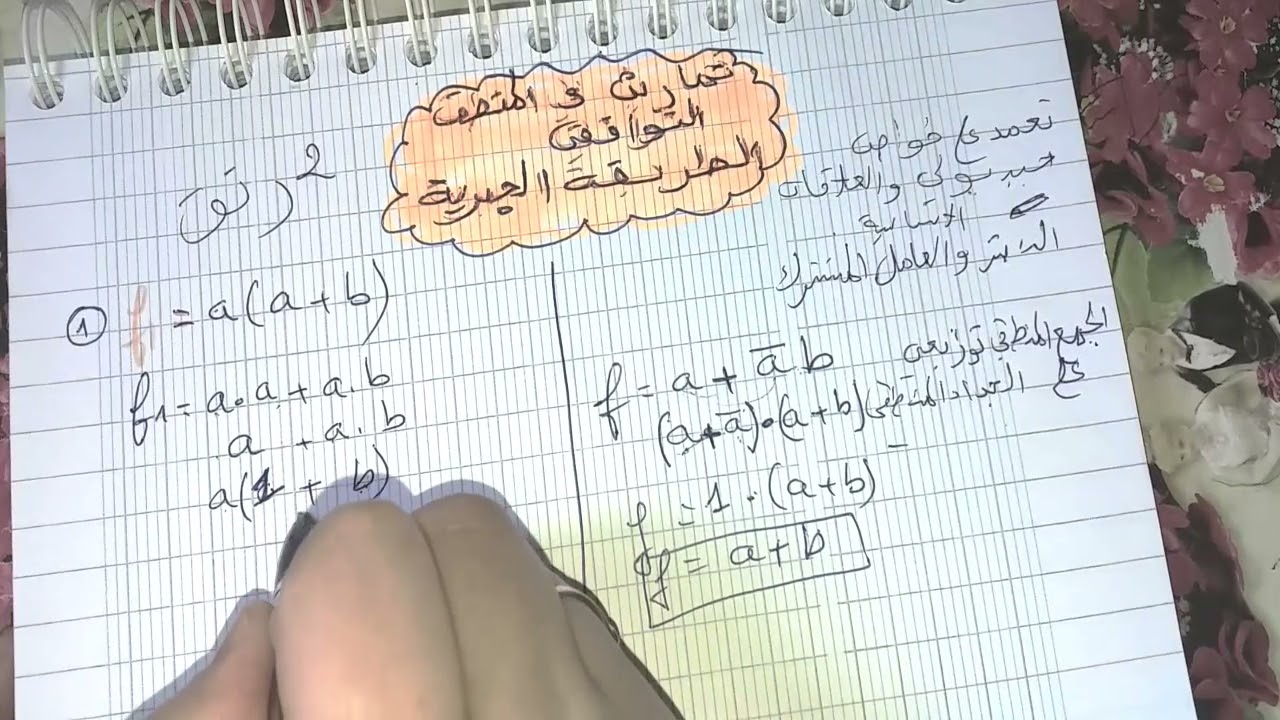 تمارين في المنطق
التوافقي
الطريقة الجبرية
2
تعمدي خواص
جبر بولي والعلاقات
الاساسية
النشر والعامل المشترك
① f = a(a+b)
f1 = a.a + a.b
a + a.b
a(1 + b)
الجمع المنطقي توزيعي
ع الجداء المنطقي
f = a + a̅.b
(a+a̅).(a+b)
f = 1.(a+b)
f = a+b